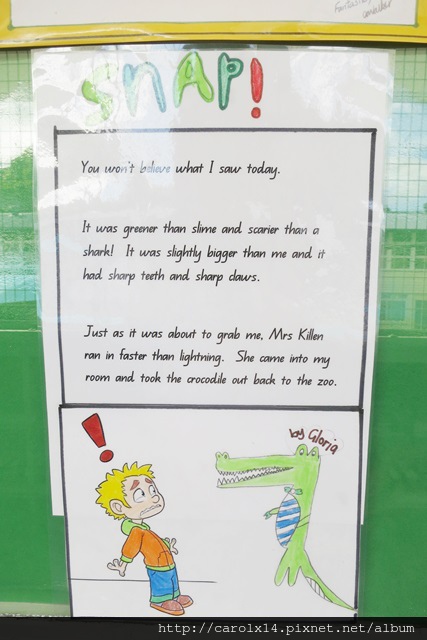 Fantastic
SNAP!
You won't believe what I saw today.
It was greener than slime and scarier than a
shark! It was slightly bigger than me and it
had sharp teeth and sharp claws.
Just as it was about to grab me, Mrs Killen
ran in faster than lightning. She came into my
room and took the crocodile out back to the zoo.
by Gloria
http://carolx14.pixnet.net/album